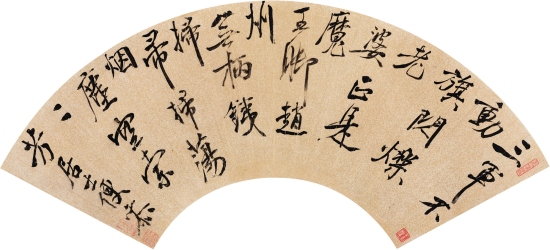 三軍不
動
旗閃爍
老
婆正是
魔
王脚趙
州
無柄鐵
掃
帚掃蕩
烟
塵空索
〻